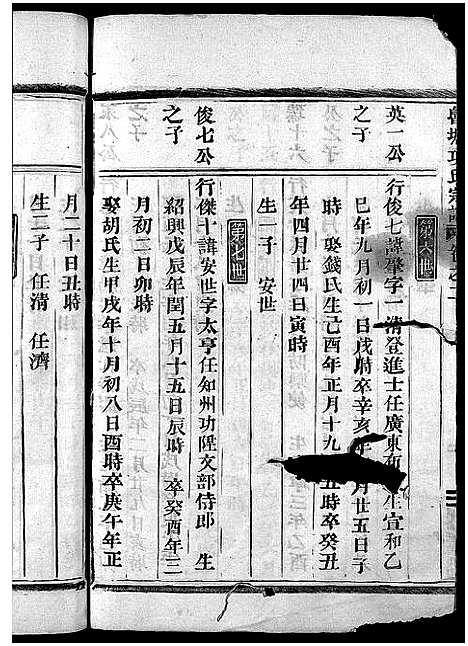 第六世
英一公
之子
行俊七諱肇字一清登進士任廣東布 生宣和乙
巳年九月初一日戌時卒辛亥年 月廿五日子
時 娶錢氏生己酉年正月十九 丑時卒癸丑
年四月廿四日寅時
生一子 安世
第七世
俊七公
之子
行傑十諱安世字太亨任知州功陞文部侍郎 生
紹興戊辰年閏五月十五日辰時 卒癸酉年三
月初二日卯時
娶胡氏生甲戌年十月初八日酉時卒庚午年正
月二十日丑時
生二子 任清 任濟